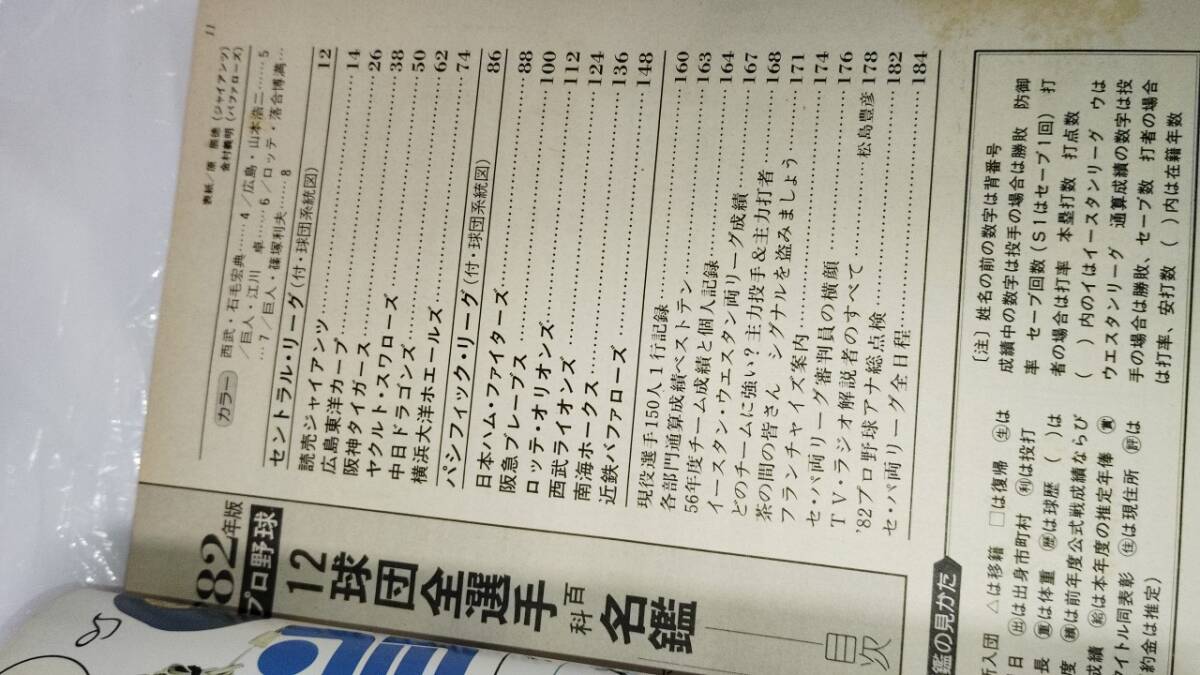 '82年版
プロ野球
12球団全選手
百科
名鑑
目次
表紙/原 辰徳(ジャイアンツ)
金村義明(バファローズ)
カラー 西武・石毛宏典……4/広島・山本浩二……5
/巨人・江川 卓……6/ロッテ・落合博満…
…7/巨人・篠塚利夫……8
セントラル・リーグ(付・球団系統図) 12
読売ジャイアンツ 14
広島東洋カープ 26
阪神タイガース 38
ヤクルト・スワローズ 50
中日ドラゴンズ 62
横浜大洋ホエールズ 74
パシフィック・リーグ(付・球団系統図) 86
日本ハム・ファイターズ 88
阪急ブレーブス 100
ロッテ・オリオンズ 112
西武ライオンズ 124
南海ホークス 136
近鉄バファローズ 148
現役選手150人1行記録 160
各部門通算成績ベストテン 163
56年度チーム成績と個人記録 164
イースタン・ウエスタン両リーグ成績 167
どのチームに強い?主力投手&主力打者 168
茶の間の皆さん シグナルを盗みましょう 171
フランチャイズ案内 174
セ・パ両リーグ審判員の横顔 176
TV・ラジオ解説者のすべて 178
'82プロ野球アナ総点検 松島豊彦 182
セ・パ両リーグ全日程 184
11
鑑の見かた
〔注〕姓名の前の数字は背番号
成績中の数字は投手の場合は勝敗 防御
率 セーブ回数(S1はセーブ1回) 打
者の場合は打率 本塁打数 打点数
( )内のイはイースタンリーグ ウは
ウエスタンリーグ 通算成績の数字は投
手の場合は勝敗、セーブ数 打者の場合
は打率、安打数 ( )内は在籍年数
新入団 △は移籍 □は復帰 生は
日 出は出身市町村 利は投打
長 重は体重 歴は球歴 ( )は
度 績は前年度公式戦成績ならび
成績 給は本年度の推定年俸 賞
タイトル同表彰 住は現住所 評は
約金は推定)